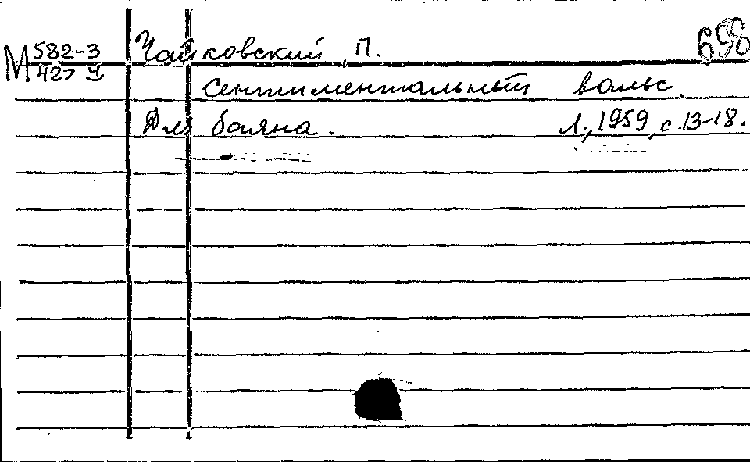 М 582-3 Чайковский П. 698
427 Ч
Сентиментальный вальс.
Для баяна. Л., 1959, с. 13-18.